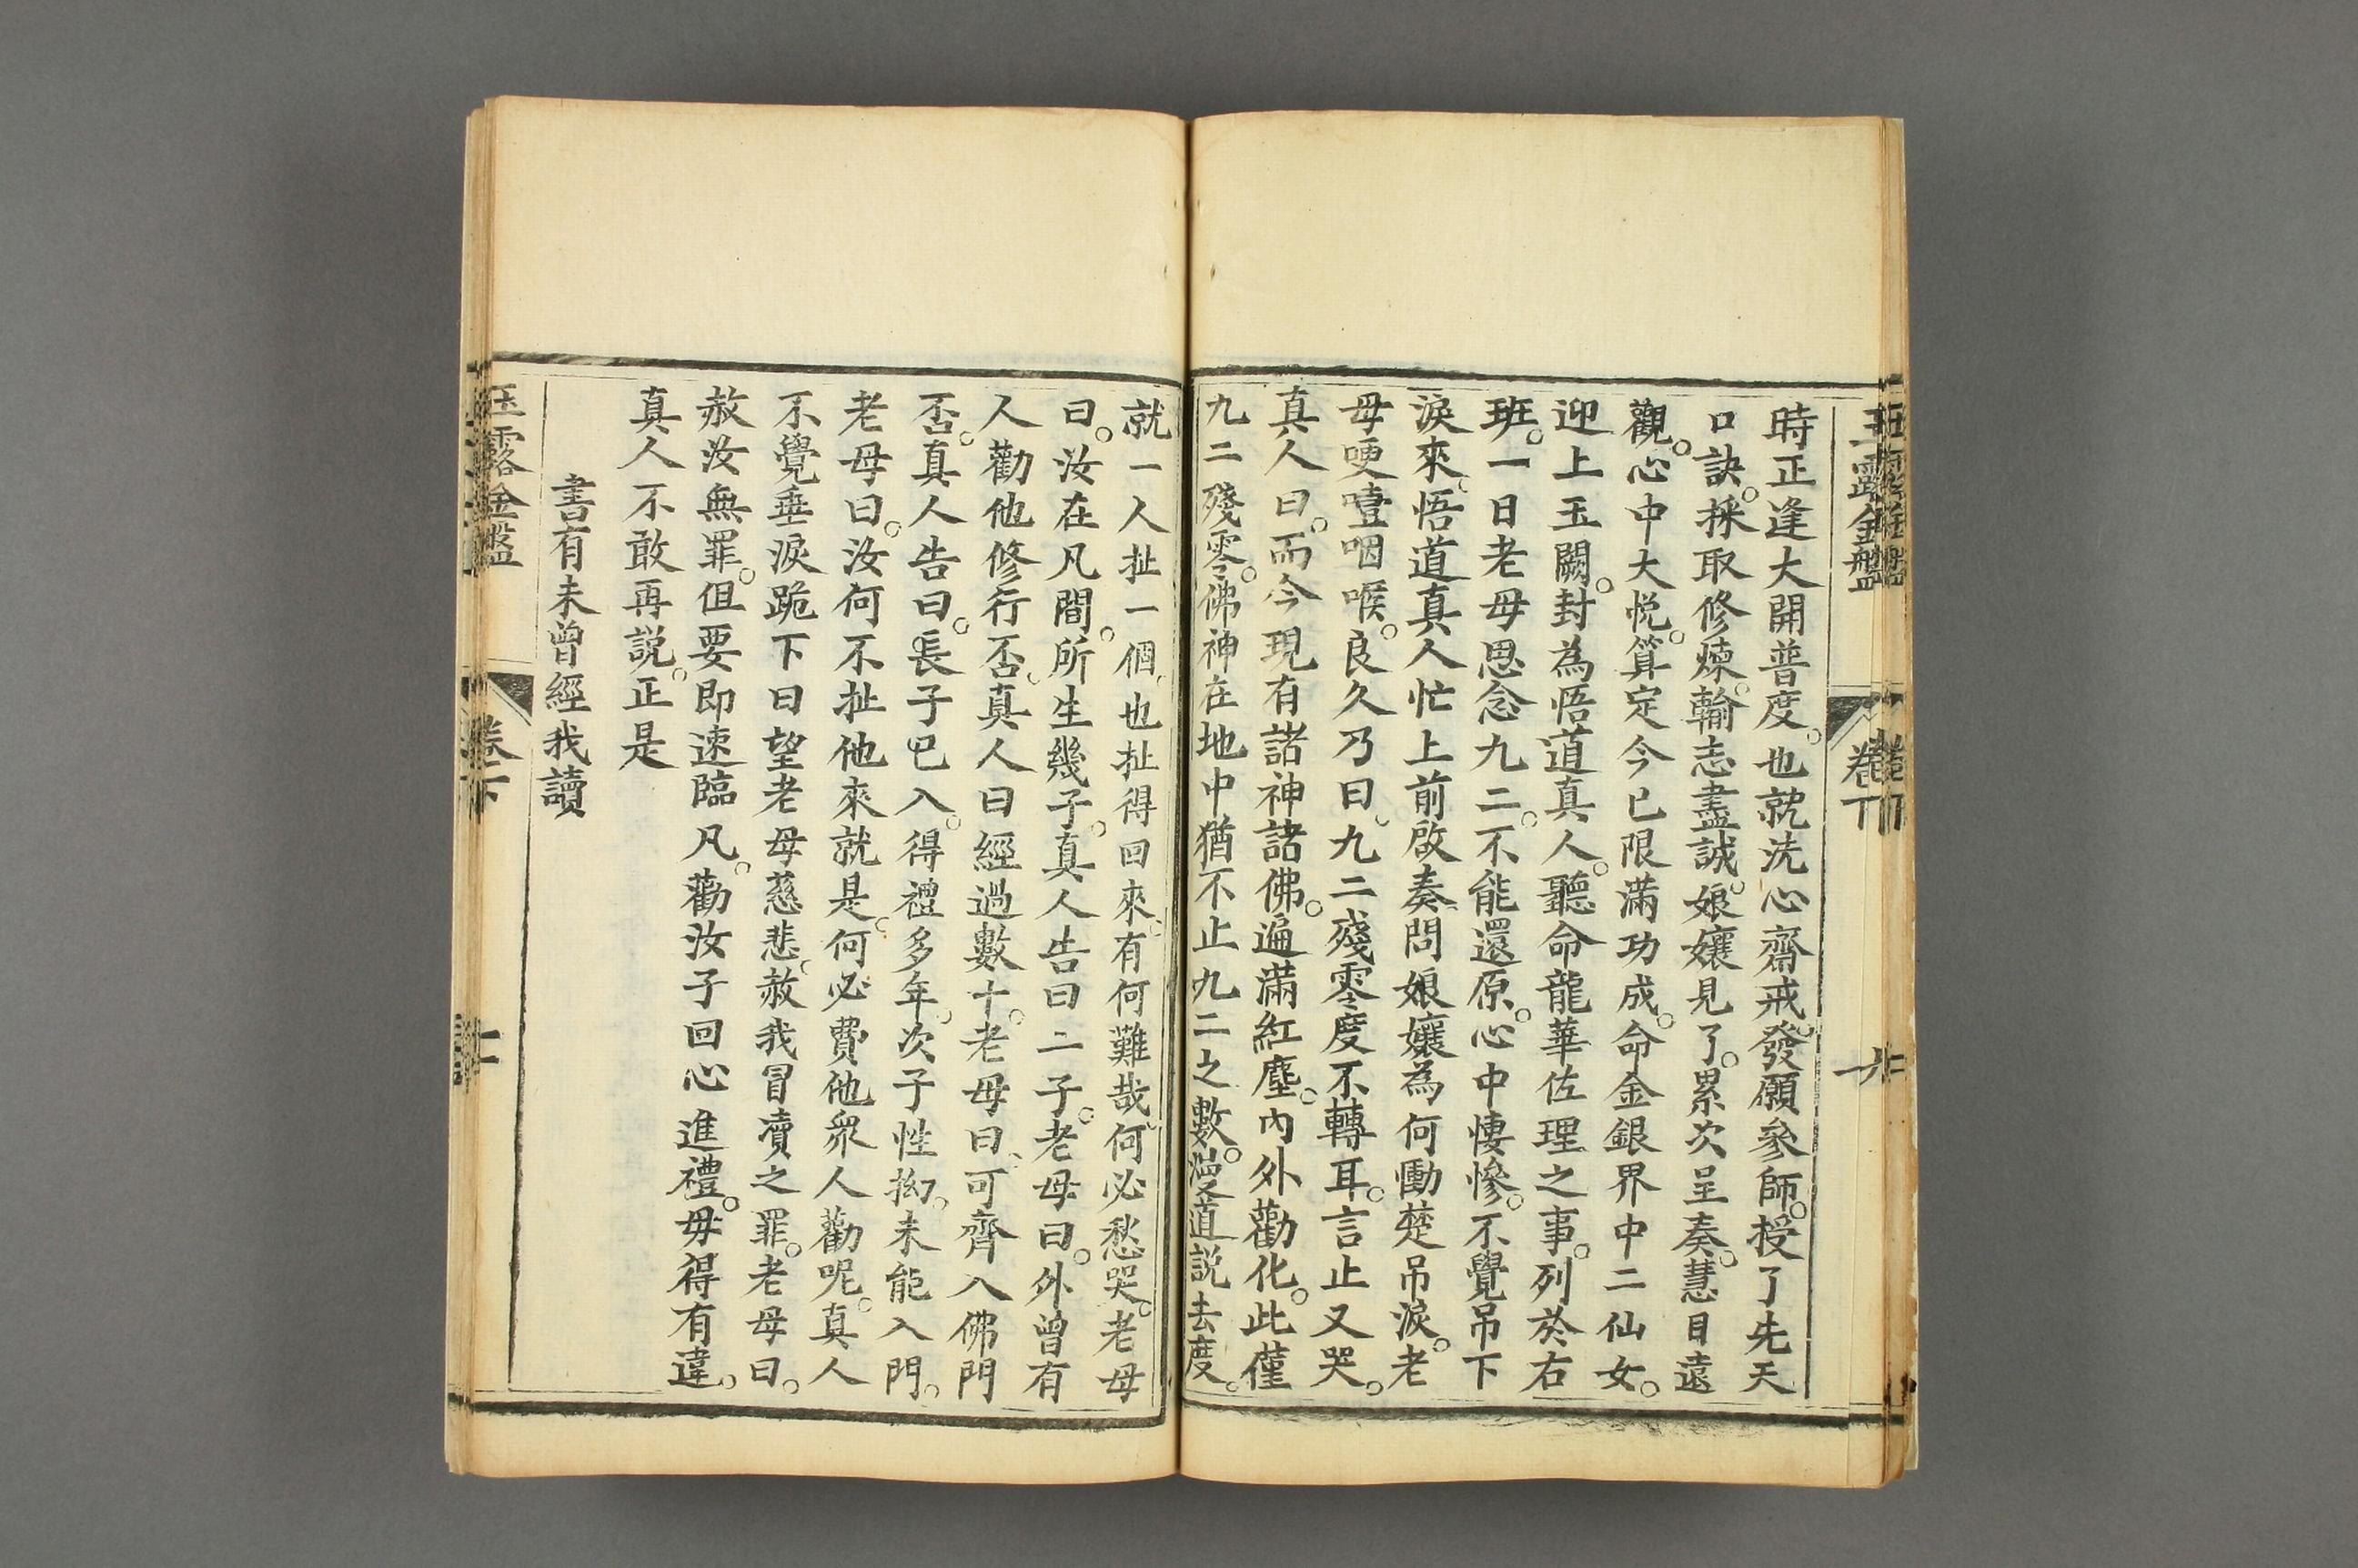 玉露金盤 卷下 六
時正逢大開普度。也就洗心齋戒。發願參師。授了先天
口訣。採取修煉。輸志盡誠。娘孃見了。累次呈奏。慧目遠
觀。心中大悅。算定今已限滿功成。命金銀界中二仙女。
迎上玉闕。封為悟道真人。聽命龍華佐理之事。列於右
班。一日老母思念九二。不能還原。心中悽慘。不覺吊下
淚來。悟道真人忙上前啟奏。問娘孃為何慟楚吊淚。老
母哽噎咽喉。良久乃曰。九二殘零度不轉耳。言止又哭。
真人曰。而今現有諸神諸佛。遍滿紅塵。內外勸化。此僅
九二殘零。佛神在地中猶不止九二之數。漫道說去度。
就一人扯一個。也扯得回來。有何難哉。何必愁哭。老母
曰。汝在凡間。所生幾子。真人告曰二子。老母曰。外曾有
人勸他修行否。真人曰經過數十。老母曰。可齊入佛門
否。真人告曰。長子已入。得禮多年。次子性拗。未能入門。
老母曰。汝何不扯他來就是。何必費他眾人勸呢。真人
不覺垂淚跪下曰望老母慈悲。赦我冒凟之罪。老母曰。
赦汝無罪。但要即速臨凡。勸汝子回心進禮。毋得有違。
真人不敢再說。正是
書有未曾經我讀
玉露金盤 卷下